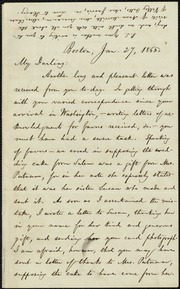 Boston, Jan. 27, 1865.
My Darling:
Another long and pleasant letter was
received from you to-day. In getting through
with your varied correspondence since your
arrival in Washington, writing letters of ac-
knowledgment for favors received, &c. you
must have had a severe task. Speaking
of favors—an error in supposing the wed-
ding cake from Salem was a gift from Mrs.
Putnam, for in her note she expressly states
that it was her sister Susan who made and
sent it. As soon as I ascertained the mis-
take, I wrote a letter to Susan, thanking her
in your name for her kind and generous
gift, and sending her your card photograph.
I am afraid, however, that you may have
sent a letter of thanks to Mrs. Putnam,
supposing the cake to have come from her.